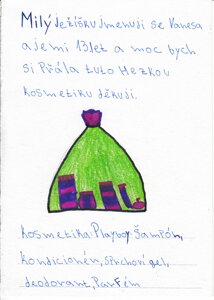 Milý Ježíšku jmenuji se Vanesa
a jemi 13let a moc bych
si Přála tuto Hezkou
kosmetiku děkuji.
kosmetika Playboy Šampón,
kondicionér, sprchoví gel,
deodorant, Parfém